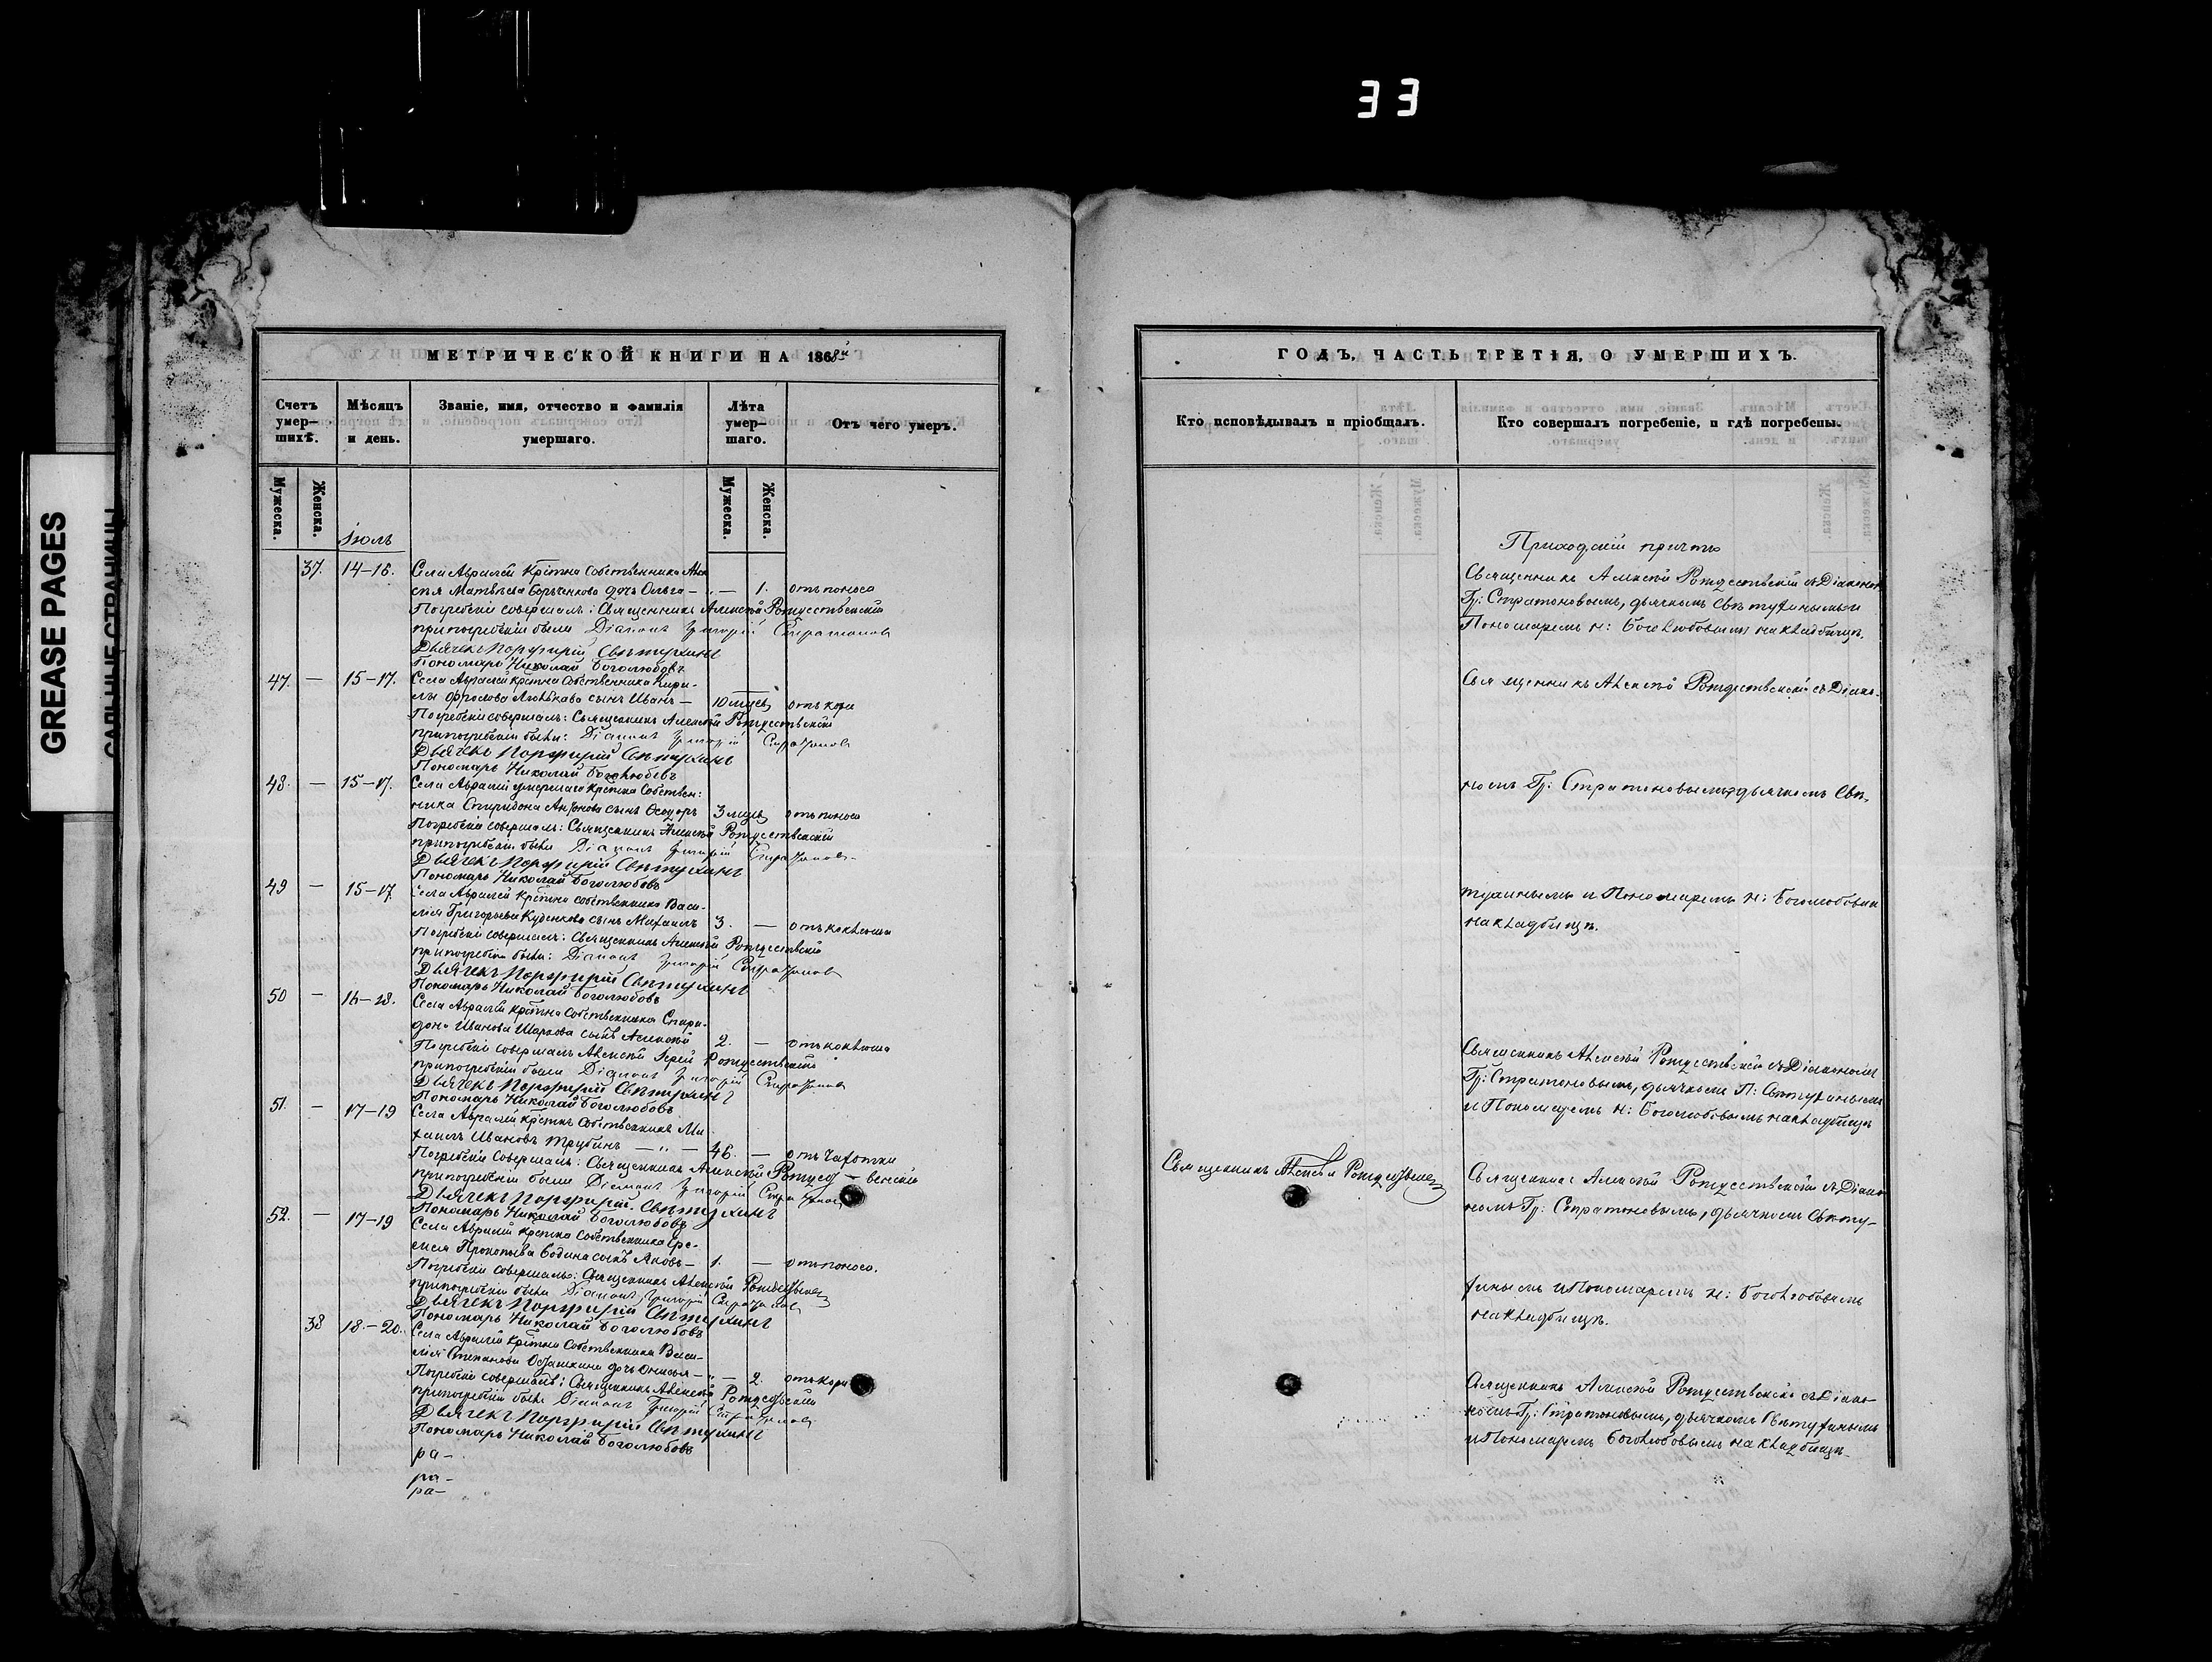 33
GREASE PAGES
МЕТРИЧЕСКОЙ КНИГИ НА 1868й
Счетъ умершихъ.
Мѣсяцъ и день.
Званіе, имя, отчество и фамилія умершаго.
Лѣта умершаго.
Отъ чего умеръ.
Мужеска.
Женска.
Мужеска.
Женска.
Іюль
37. 14-16. Села Авралей Крестна Собственника Але-
ксѣя Матвѣева дочь Ольга — " — 1. отъ поноса
Погребеніе совершалъ: Священникъ Алексѣй Рождественскій
при погребеніи были Діаконъ Григорій Стратоновъ
Дьячекъ Порфирій Свѣтухинъ
Пономарь Николай Боголюбовъ
47. — 15-17. Села Авралей крестна Собственника Кири-
лы Фролова сынъ Иванъ — 10 мцсъ отъ кори
Погребеніе совершалъ: Священникъ Алексѣй Рождественскій
при погребеніи были: Діаконъ Григорій Стратоновъ
Дьячекъ Порфирій Свѣтухинъ
Пономарь Николай Боголюбовъ
48. — 15-17. Села Авралей умершаго крестна Собствен:
ника Спиридона Антонова сынъ Ѳеодоръ 3 мцсъ отъ поноса
Погребеніе совершалъ: Священникъ Алексѣй Рождественскій
при погребеніи были Діаконъ Григорій Стратоновъ
Дьячекъ Порфирій Свѣтухинъ
Пономарь Николай Боголюбовъ
49 — 15-17. Села Авралей Крестна собственника Васи-
лія Григорьева Куденкова сынъ Михаилъ 3. — отъ коклюша
Погребеніе совершалъ: Священникъ Алексѣй Рождественскій
при погребеніи были: Діаконъ Григорій Стратоновъ
Дьячекъ Порфирій Свѣтухинъ
Пономарь Николай Боголюбовъ
50 — 16-18. Села Авралей крестна Собственника Спири-
дона Иванова Шарова сынъ Алексѣй 2. — отъ коклюша
Погребеніе совершалъ Алексѣй Іерей Рождественскій
при погребеніи были Діаконъ Григорій Стратоновъ
Дьячекъ Порфирій Свѣтухинъ
Пономарь Николай Боголюбовъ
51. — 17-19 Села Авралей крестнъ Собственникъ Ми-
хаилъ Ивановъ Трубинъ — " — 46. — отъ чахотки
Погребеніе Совершалъ: Священникъ Алексѣй Рождественскій
при погребеніи были Діаконъ Григорій Стратоновъ
Дьячекъ Порфирій Свѣтухинъ
Пономарь Николай Боголюбовъ
52. — 17-19 Села Авралей крестна Собственника
Прокопьева сынъ Яковъ — 1. — отъ поноса.
Погребеніе совершалъ: Священникъ Алексѣй Рождественскій
при погребеніи были Діаконъ Григорій Стратоновъ
Дьячекъ Порфирій Свѣтухинъ
Пономарь Николай Боголюбовъ
38 18.-20. Села Авралей Крестна Собственника Васи-
лія Степанова дочь Онисья — " — 2. отъ кори
Погребеніе совершалъ: Священникъ Алексѣй Рождественскій
при погребеніи были Діаконъ Григорій Стратоновъ
Дьячекъ Порфирій Свѣтухинъ
Пономарь Николай Боголюбовъ
ра-
ра-
ра-
ГОДЪ, ЧАСТЬ ТРЕТІЯ, О УМЕРШИХЪ.
Кто исповѣдывалъ и пріобщалъ.
Кто совершалъ погребеніе, и гдѣ погребены.
Приходскій причтъ
Священникъ Алексѣй Рождественскій съ Діакономъ
Гр: Стратоновымъ, дьячкомъ Свѣтухинымъ и
Пономаремъ Н: Боголюбовымъ на кладбищѣ.
Священникъ Алексѣй Рождественскій съ Діако-
номъ Гр: Стратоновымъ, дьячкомъ Свѣ-
тухинымъ и Пономаремъ Н: Боголюбовым
на кладбищѣ.
Священникъ Алексѣй Рождественскій съ Діакономъ
Гр: Стратоновымъ, дьячкомъ П: Свѣтухинымъ
и Пономаремъ Н: Боголюбовымъ на кладбищѣ
Священникъ Алексѣй Рождественскій
Священникъ Алексѣй Рождественскій съ Діако-
номъ Гр: Стратоновымъ, дьячкомъ Свѣту-
хинымъ и Пономаремъ Н: Боголюбовымъ
на кладбищѣ.
Священникъ Алексѣй Рождественскій съ Діако-
номъ Гр: Стратоновымъ, дьячкомъ Свѣтухинымъ
и Пономаремъ Боголюбовымъ на кладбищѣ-